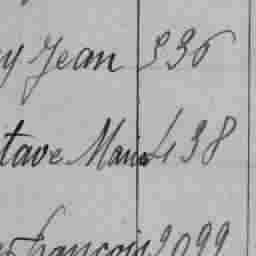 y Jean 336
tave Marie 438
François 2099